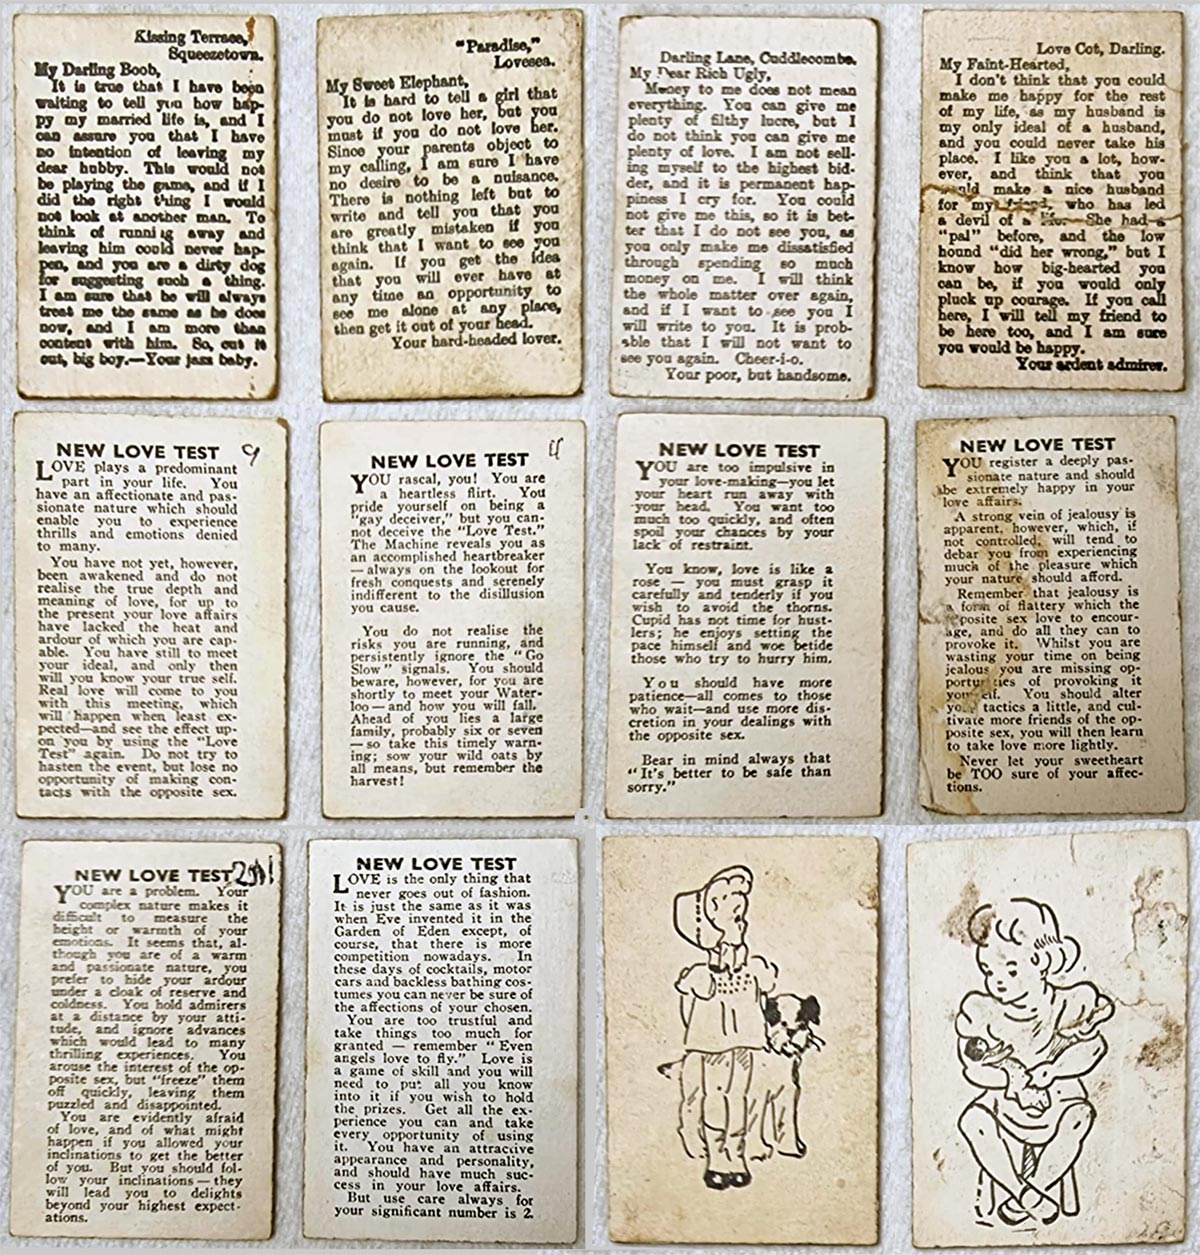 Kissing Terrace,
Squeezetown.
My Darling Boob,
It is true that I have been
waiting to tell you how hap-
py my married life is, and I
can assure you that I have
no intention of leaving my
dear hubby. This would not
be playing the game, and if I
did the right thing I would
not look at another man. To
think of running away and
leaving him could never hap-
pen, and you are a dirty dog
for suggesting such a thing.
I am sure that he will always
treat me the same as he does
now, and I am more than
content with him. So, cut it
out, big boy.—Your jazz baby.
"Paradise,"
Lovesea.
My Sweet Elephant,
It is hard to tell a girl that
you do not love her, but you
must if you do not love her.
Since your parents object to
my calling, I am sure I have
no desire to be a nuisance.
There is nothing left but to
write and tell you that you
are greatly mistaken if you
think that I want to see you
again. If you get the idea
that you will ever have at
any time an opportunity to
see me alone at any place,
then get it out of your head.
Your hard-headed lover.
Darling Lane, Cuddlecombe.
My Dear Rich Ugly,
Money to me does not mean
everything. You can give me
plenty of filthy lucre, but I
do not think you can give me
plenty of love. I am not sell-
ing myself to the highest bid-
der, and it is permanent hap-
piness I cry for. You could
not give me this, so it is bet-
ter that I do not see you, as
you only make me dissatisfied
through spending so much
money on me. I will think
the whole matter over again,
and if I want to see you I
will write to you. It is prob-
able that I will not want to
see you again. Cheer-i-o.
Your poor, but handsome.
Love Cot, Darling.
My Faint-Hearted,
I don't think that you could
make me happy for the rest
of my life, as my husband is
my only ideal of a husband,
and you could never take his
place. I like you a lot, how-
ever, and think that you
would make a nice husband
for my friend, who has led
a devil of a life. She had a
"pal" before, and the low
hound "did her wrong," but I
know how big-hearted you
can be, if you would only
pluck up courage. If you call
here, I will tell my friend to
be here too, and I am sure
you would be happy.
Your ardent admirer.
NEW LOVE TEST 9
LOVE plays a predominant
part in your life. You
have an affectionate and pas-
sionate nature which should
enable you to experience
thrills and emotions denied
to many.
You have not yet, however,
been awakened and do not
realise the true depth and
meaning of love, for up to
the present your love affairs
have lacked the heat and
ardour of which you are cap-
able. You have still to meet
your ideal, and only then
will you know your true self.
Real love will come to you
with this meeting, which
will happen when least ex-
pected—and see the effect up-
on you by using the "Love
Test" again. Do not try to
hasten the event, but lose no
opportunity of making con-
tacts with the opposite sex.
NEW LOVE TEST
YOU rascal, you! You are
a heartless flirt. You
pride yourself on being a
"gay deceiver," but you can-
not deceive the "Love Test."
The Machine reveals you as
an accomplished heartbreaker
—always on the lookout for
fresh conquests and serenely
indifferent to the disillusion
you cause.
You do not realise the
risks you are running, and
persistently ignore the "Go
Slow" signals. You should
beware, however, for you are
shortly to meet your Water-
loo—and how you will fall.
Ahead of you lies a large
family, probably six or seven
—so take this timely warn-
ing; sow your wild oats by
all means, but remember the
harvest!
NEW LOVE TEST
YOU are too impulsive in
your love-making—you let
your heart run away with
your head. You want too
much too quickly, and often
spoil your chances by your
lack of restraint.
You know, love is like a
rose — you must grasp it
carefully and tenderly if you
wish to avoid the thorns.
Cupid has not time for hust-
lers; he enjoys setting the
pace himself and woe betide
those who try to hurry him.
You should have more
patience—all comes to those
who wait—and use more dis-
cretion in your dealings with
the opposite sex.
Bear in mind always that
"It's better to be safe than
sorry."
NEW LOVE TEST
YOU register a deeply pas-
sionate nature and should
be extremely happy in your
love affairs.
A strong vein of jealousy is
apparent, however, which, if
not controlled, will tend to
debar you from experiencing
much of the pleasure which
your nature should afford.
Remember that jealousy is
a form of flattery which the
opposite sex love to encour-
age, and do all they can to
provoke it. Whilst you are
wasting your time on being
jealous you are missing op-
portunities of provoking it
yourself. You should alter
your tactics a little, and cul-
tivate more friends of the op-
posite sex, you will then learn
to take love more lightly.
Never let your sweetheart
be TOO sure of your affec-
tions.
NEW LOVE TEST
YOU are a problem. Your
complex nature makes it
difficult to measure the
height or warmth of your
emotions. It seems that, al-
though you are of a warm
and passionate nature, you
prefer to hide your ardour
under a cloak of reserve and
coldness. You hold admirers
at a distance by your atti-
tude, and ignore advances
which would lead to many
thrilling experiences. You
arouse the interest of the op-
posite sex, but "freeze" them
off quickly, leaving them
puzzled and disappointed.
You are evidently afraid
of love, and of what might
happen if you allowed your
inclinations to get the better
of you. But you should fol-
low your inclinations—they
will lead you to delights
beyond your highest expect-
ations.
NEW LOVE TEST
LOVE is the only thing that
never goes out of fashion.
It is just the same as it was
when Eve invented it in the
Garden of Eden except, of
course, that there is more
competition nowadays. In
these days of cocktails, motor
cars and backless bathing cos-
tumes you can never be sure of
the affections of your chosen.
You are too trustful and
take things too much for
granted — remember "Even
angels love to fly." Love is
a game of skill and you will
need to put all you know
into it if you wish to hold
the prizes. Get all the ex-
perience you can and take
every opportunity of using
it. You have an attractive
appearance and personality,
and should have much suc-
cess in your love affairs.
But use care always for
your significant number is 2.